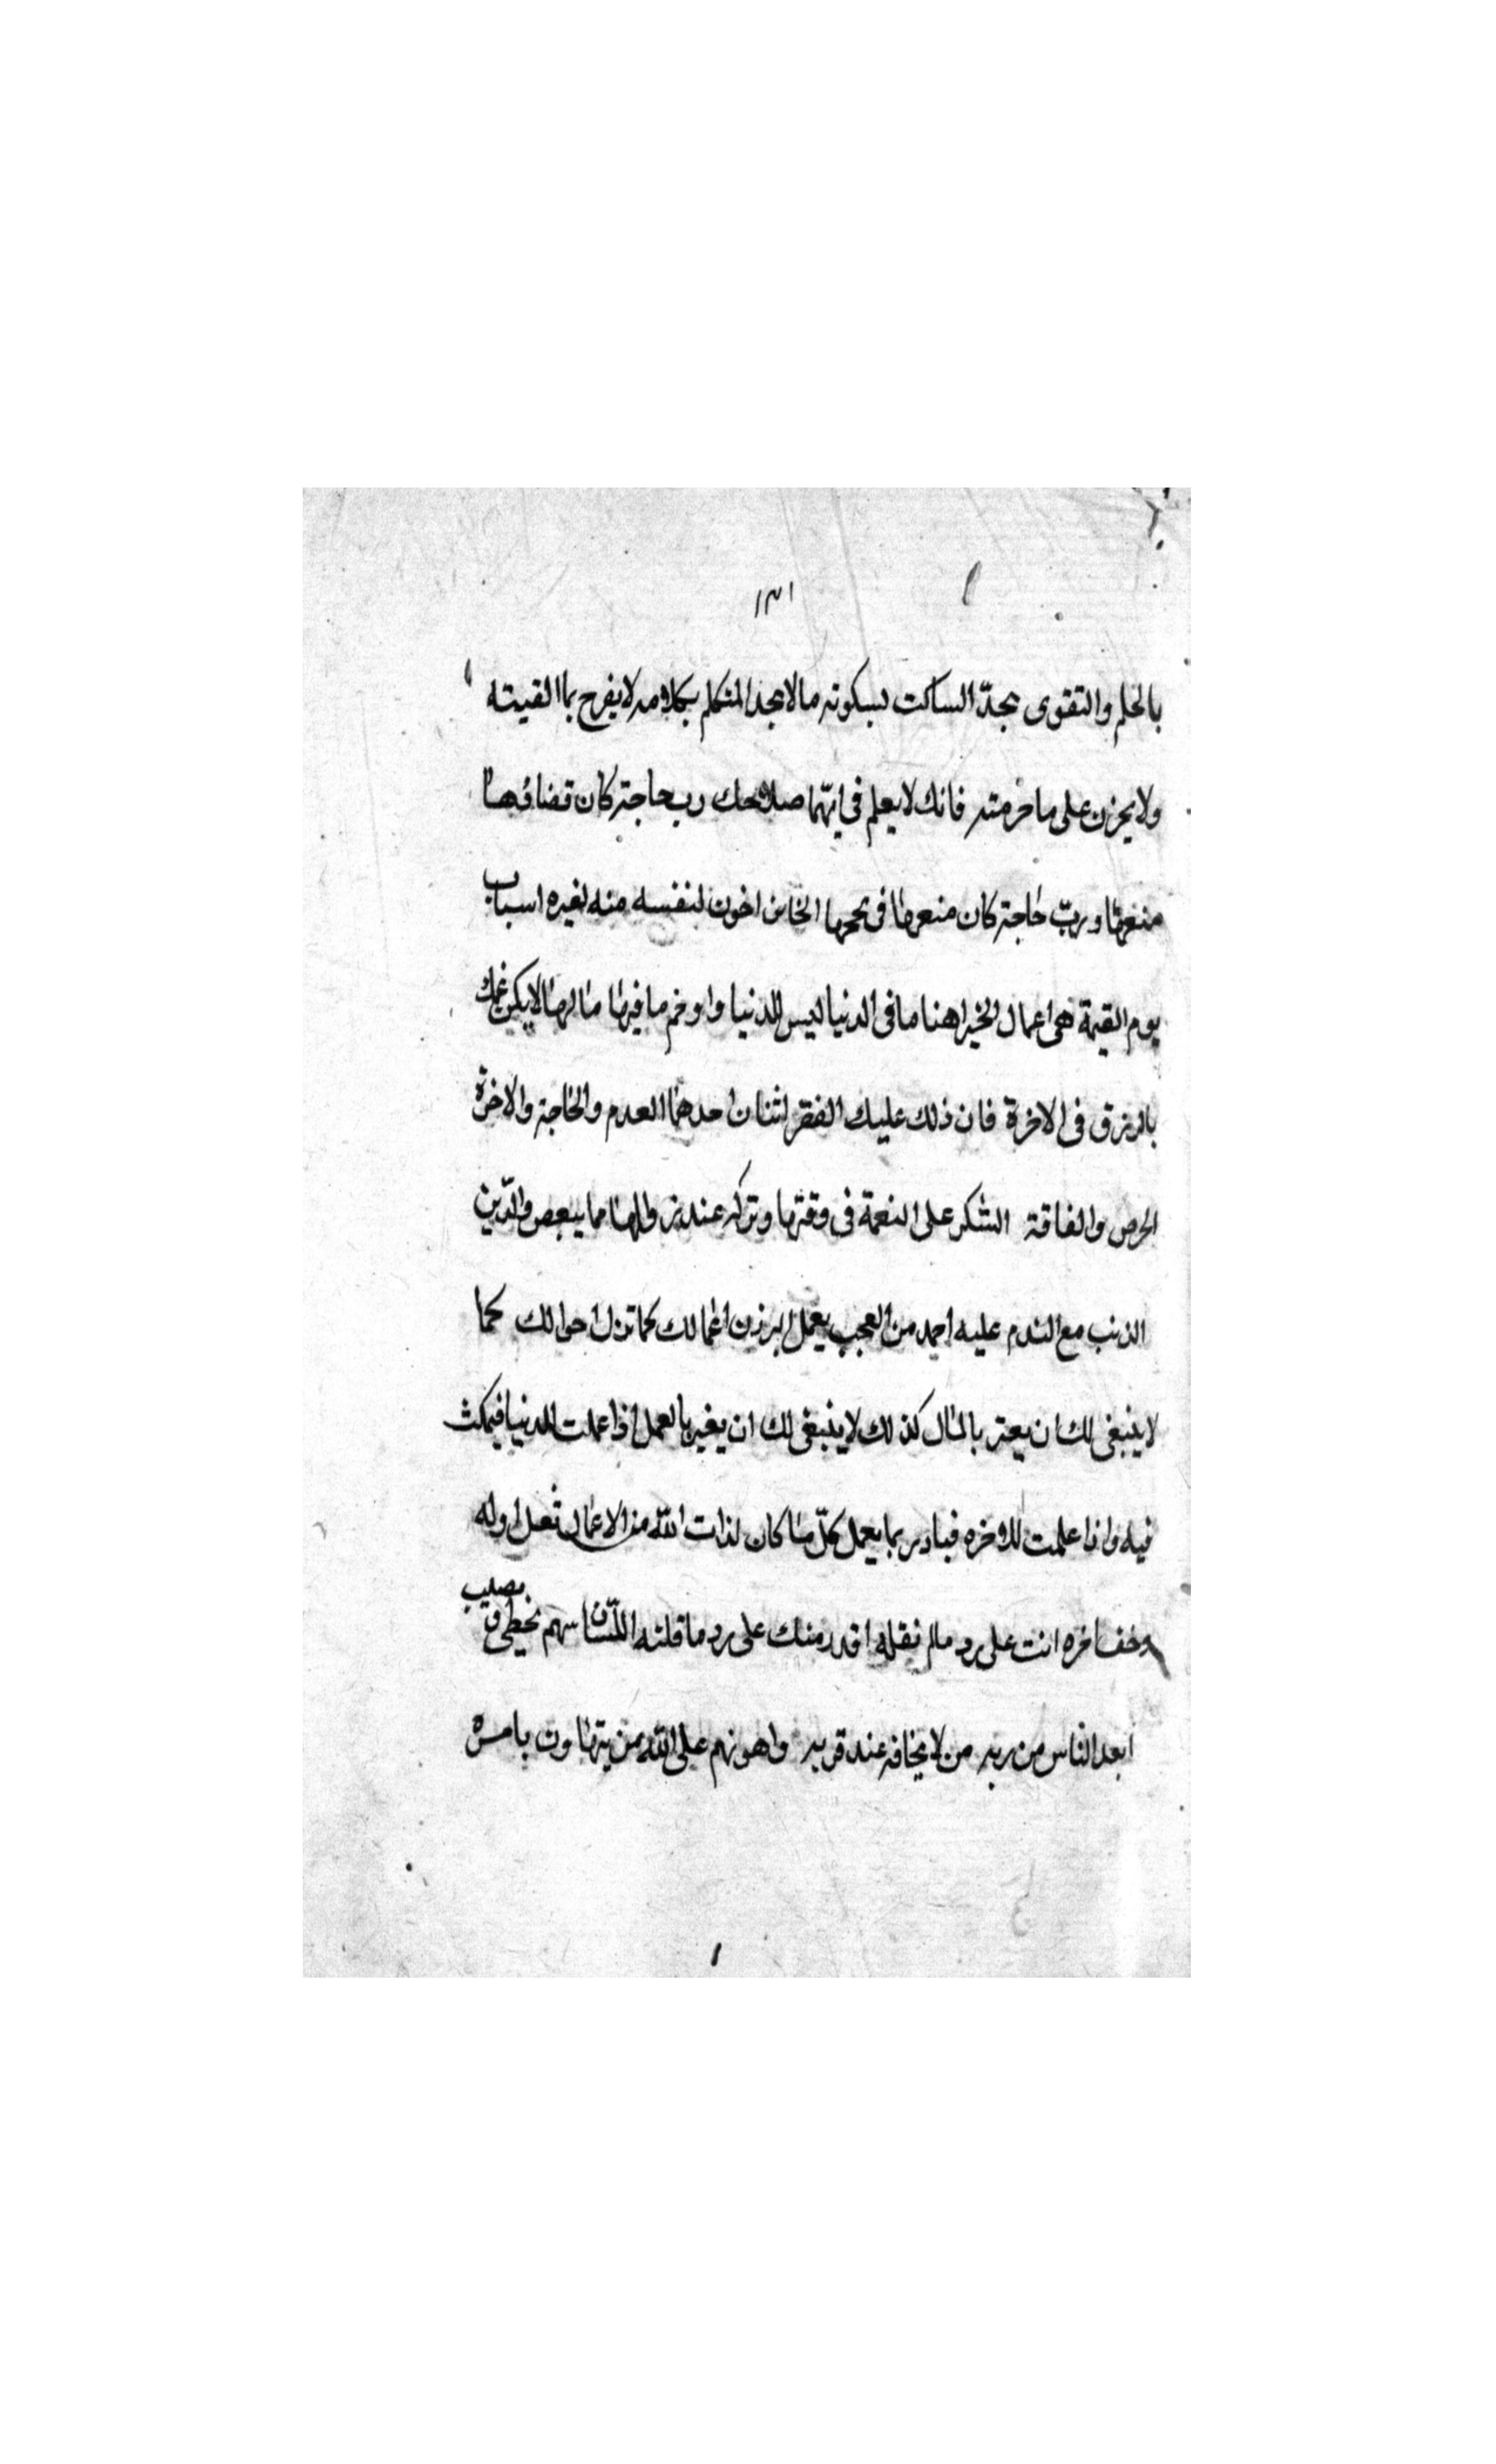 ١٣١
بالحلم والتقوى يجدّ الساكت لسكوته مالا يجد المتكلم بكلامه لا يفرح بما القيته
ولا يحزن على ما حرمته فانك لا يعلم فى ايّهما صلاحك رب حاجة كان قضاؤها
منعها وربّ حاجة كان منعها فى نجحها الخائن اخون لنفسه منه لغيره اسباب
يوم القيمة هى اعمال الخير اهنا ما فى الدنيا ليس للدنيا واوخم ما فيها مالها لا يكن غمك
بالرزق فى الاخرة فان ذلك عليك الفقر اثنان احدهما العدم والحاجة والاخرة
الحرص والفاقة الشكر على النعمة فى وقتها وتركه عند زوالها مما يبعص والدّين
الذنب مع الندم عليه احمد من العجب بعمل البر زن اعمالك كما تزن احوالك كما
لا ينبغى لك ان يعتر بالمال كذلك لا ينبغى لك ان يغير بالعمل اذا عملت للدنيا فيمكث
فيه واذا علمت للاخره فبادر بما يعمل كلّ ما كان لذات الله من الاعمال اوله
وخف اخره انت على رد مالم نقله اقدر منك على رد ما قلته اللسان سهم يخطى و يصيب
ابعد الناس من ربه من لا يخافه عند قربه واهونهم على الله من يتهاون بامره